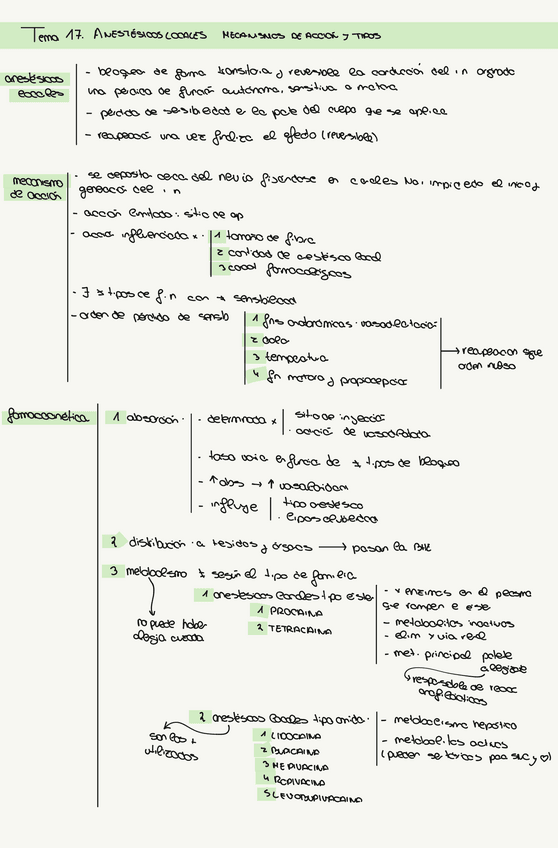 Tema 17. ANESTÉSICOS LOCALES MECANISMOS DE ACCIÓN Y TIPOS
anestésicos locales
- bloquean de forma transitoria y reversible la conducción del i.n originando
una pérdida de función autónoma, sensitiva o motora
- pérdida de sensibilidad en la parte del cuerpo que se aplica
- recuperación una vez finaliza el efecto (reversible)
mecanismo de acción
- se deposita cerca del nervio fijándose en canales Na, impidiendo el inicio y
generación del i.n
- acción limitada: sitio de ap
- acción influenciada x:
1 tamaño de fibra
2 cantidad de anestésico local
3 caract farmacológicas
- ∃ ≠ tipos de f.n con ≠ sensibilidad
- orden de pérdida de sensib
1 fns autonómicas: vasodilatación
2 dolor
3 temperatura
4 fn motora y propiocepción
→ recuperación sigue orden inverso
farmacocinética
1 absorción:
- determinada x
sitio de inyección
. adición de vasodilatador
- tasa varía en función de ≠ tipos de bloqueo
- ↑ abs → ↑ vascularidad
- influye
tipo anestésico
2 distribución: a tejidos y órganos → pasan la BHE
3 metabolismo ≠ según el tipo de familia
no puede haber alergia cruzada
1 anestésicos locales tipo éster
1 PROCAINA
2 TETRACAINA
- x enzimas en el plasma
que rompen el éster
- metabolitos inactivos
- elim x vía renal
- met. principal
responsable de reacc anafilácticas
2 anestésicos locales tipo amida:
son los + utilizados
1 LIDOCAINA
2 BUPIVACAINA
3 MEPIVACAINA
4 ROPIVACAINA
5 LEVOBUPIVACAINA
- metabolismo hepático
- metabolitos activos
(pueden ser tóxicos para SNC y ♡)